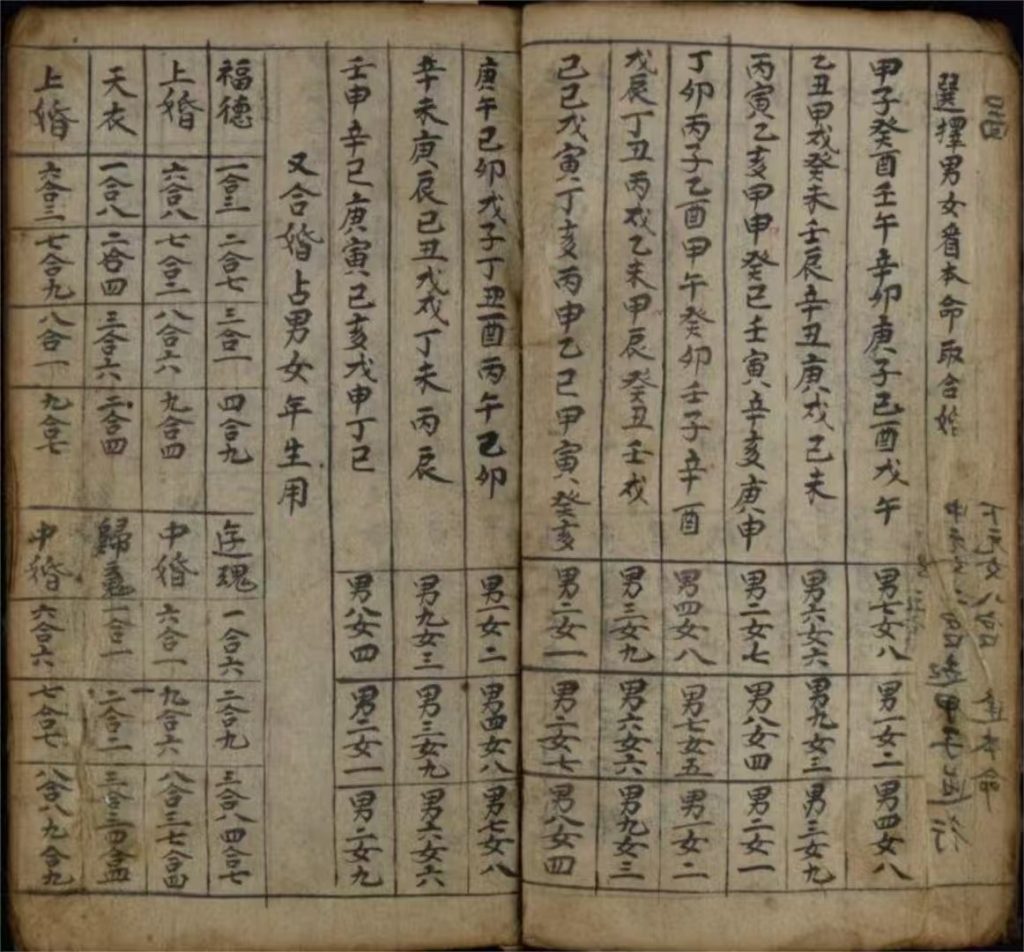 選擇男女看本命取合始
甲子癸酉壬午辛卯庚子己酉戊午
男七女八
男一女二
男四女八
乙丑甲戌癸未壬辰辛丑庚戌己未
男六女六
男九女三
男三女九
丙寅乙亥甲申癸巳壬寅辛亥庚申
男二女七
男八女四
男二女一
丁卯丙子乙酉甲午癸卯壬子辛酉
男四女八
男七女五
男一女二
戊辰丁丑丙戌乙未甲辰癸丑壬戌
男三女九
男六女六
男九女三
己巳戊寅丁亥丙申乙巳甲寅癸亥
男二女一
男二女七
男八女四
庚午己卯戊子丁丑酉丙午乙卯
男一女二
男四女八
男七女八
辛未庚辰己丑戊戌丁未丙辰
男九女三
男三女九
男六女六
壬申辛巳庚寅己亥戊申丁巳
男八女四
男二女一
男二女九
又合婚占男女年生用
福德
一合三
二合七
三合一
四合九
上婚
六合八
七合二
八合六
九合四
天衣
一合八
二合四
三合六
二合四
上婚
六合三
七合九
八合一
九合七
遊魂
一合六
二合九
三合八四合七
中婚
六合一
九合六
八合三七合四
歸魂
一合一
二合二
三合三四合四
中婚
六合六
七合七
八合八九合九